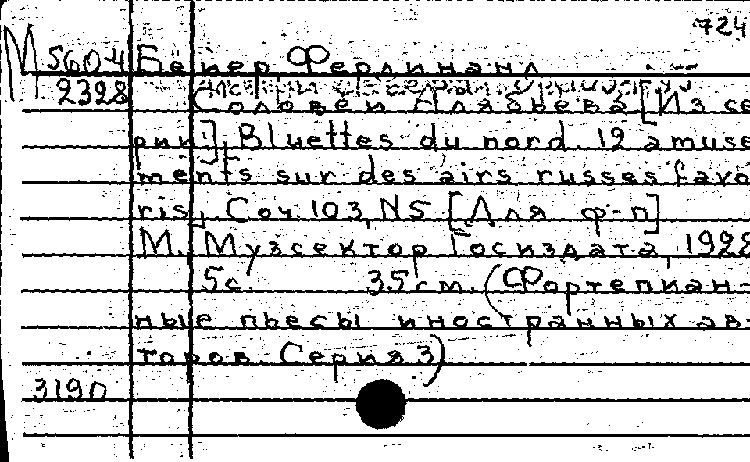 724
М 5604 Бейер Фердинанд
2328
Соловей Алябьева [Из се
рии:], Bluettes du nord. 12 amuse
ments sur des airs russes favo
ris, Соч. 103, N5 [Для ф-п]
М., Музсектор Госиздата, 1928
5с. 35см. (Фортепиан-
ные пьесы иностранных ав-
торов. Серия 3)
3190